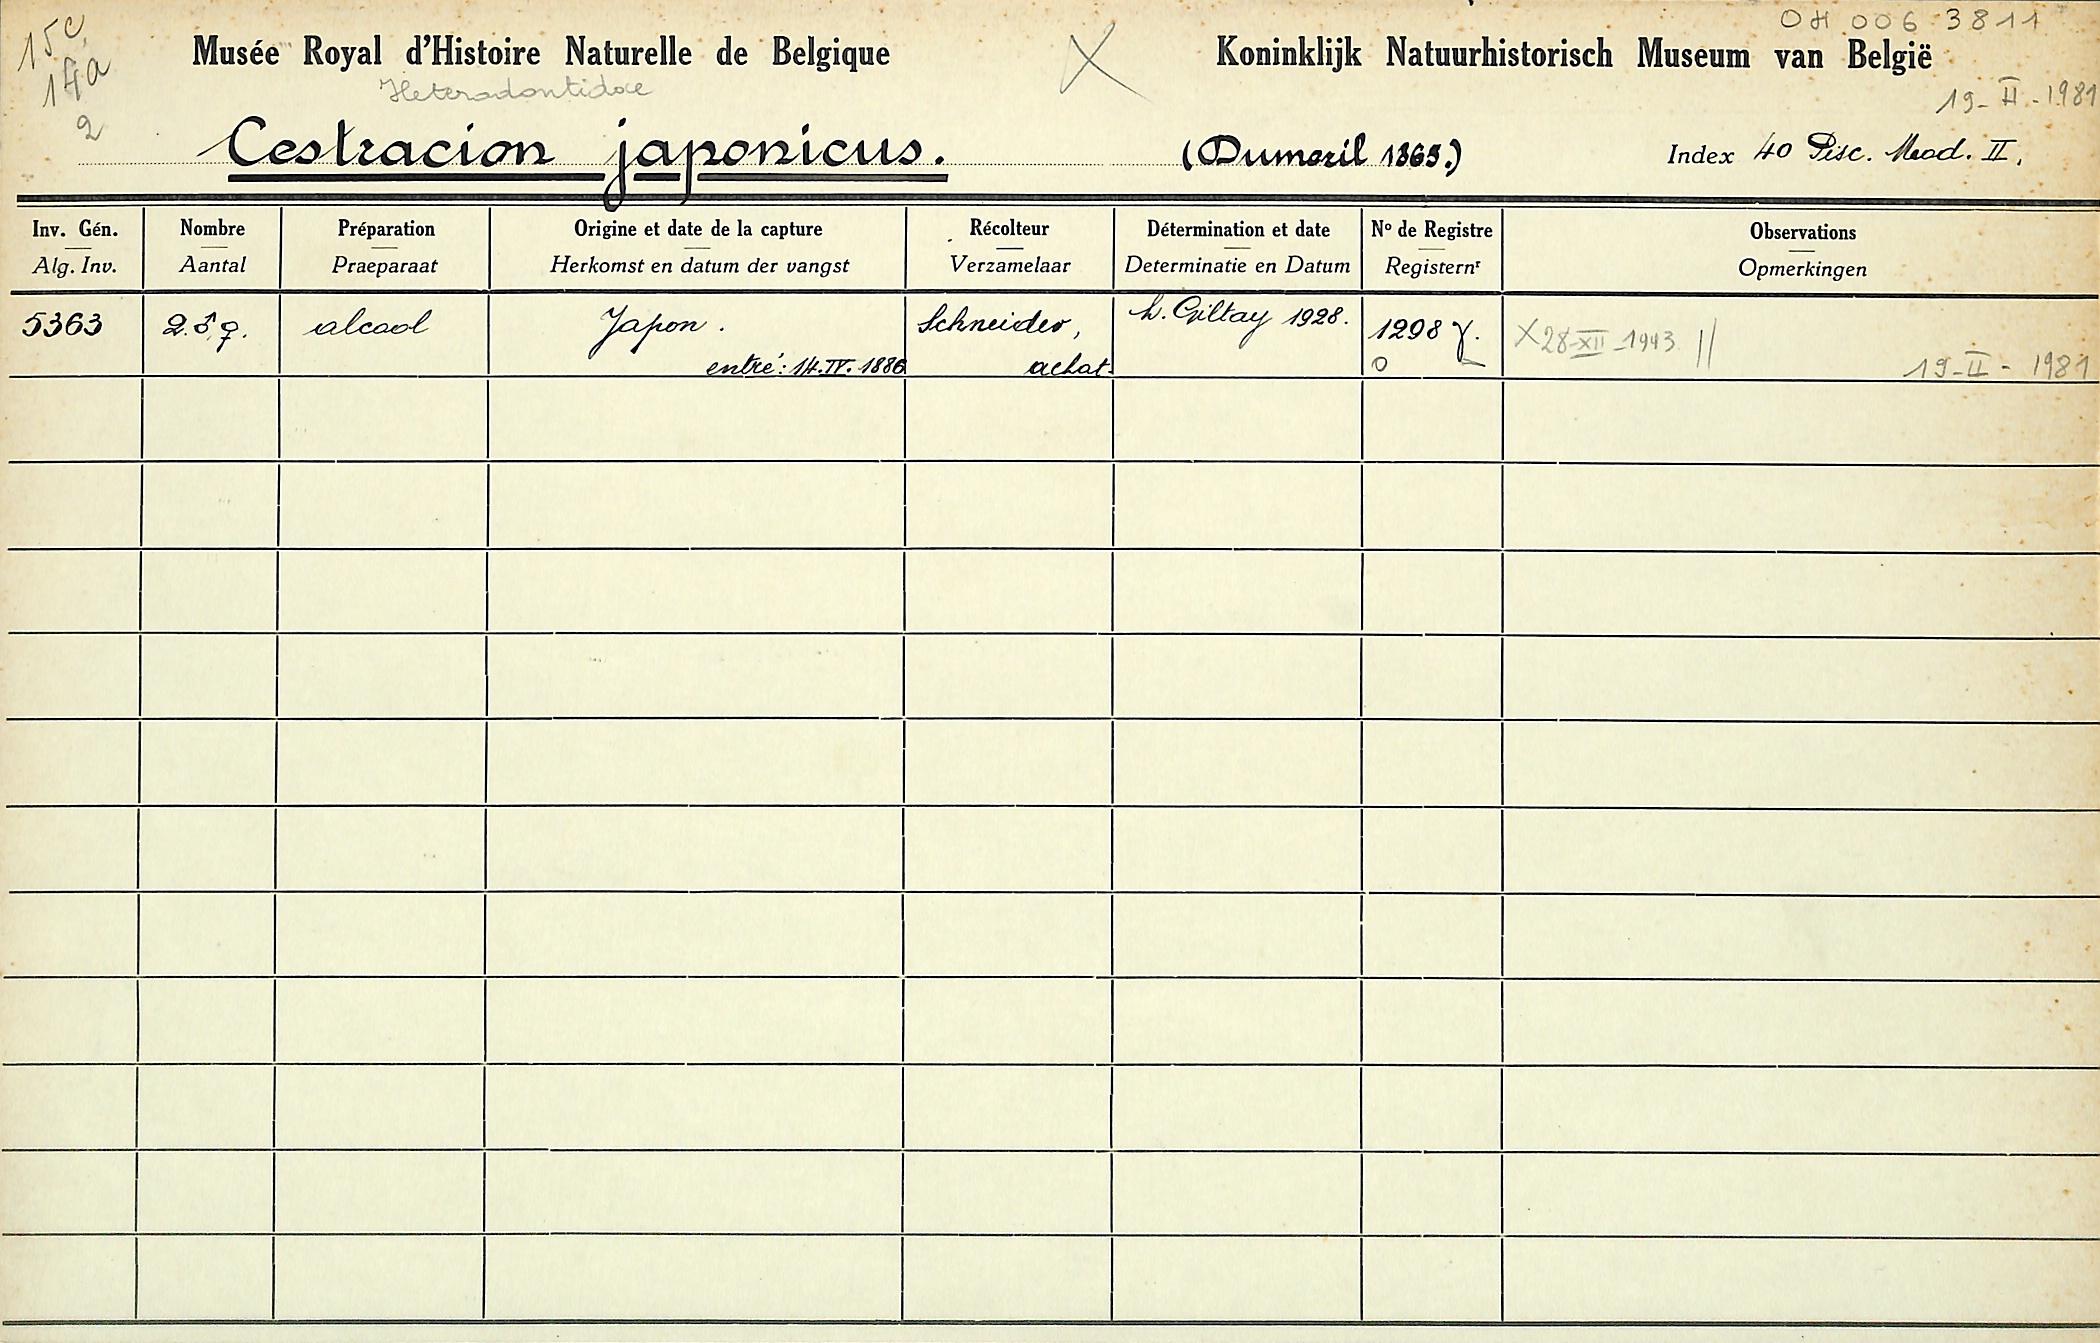 15c.
14a
2
OH 006 3811
Musée Royal d'Histoire Naturelle de Belgique
X
Koninklijk Natuurhistorisch Museum van België
Heterodontidae
19-II-1981
Cestracion japonicus.
(Dumeril 1865.)
Index 40 Pisc. Mod. II.
Inv. Gén.
Alg. Inv.
Nombre
Aantal
Préparation
Praeparaat
Origine et date de la capture
Herkomst en datum der vangst
Récolteur
Verzamelaar
Détermination et date
Determinatie en Datum
Nº de Registre
Registernʳ
Observations
Opmerkingen
5363
2. ♂. ♀.
alcool
Japon.
entré: 14.IV.1886
Schneider,
achat.
L. Giltay 1928.
1298 γ.
0
X 28-XII-1943 //
19-II-1981